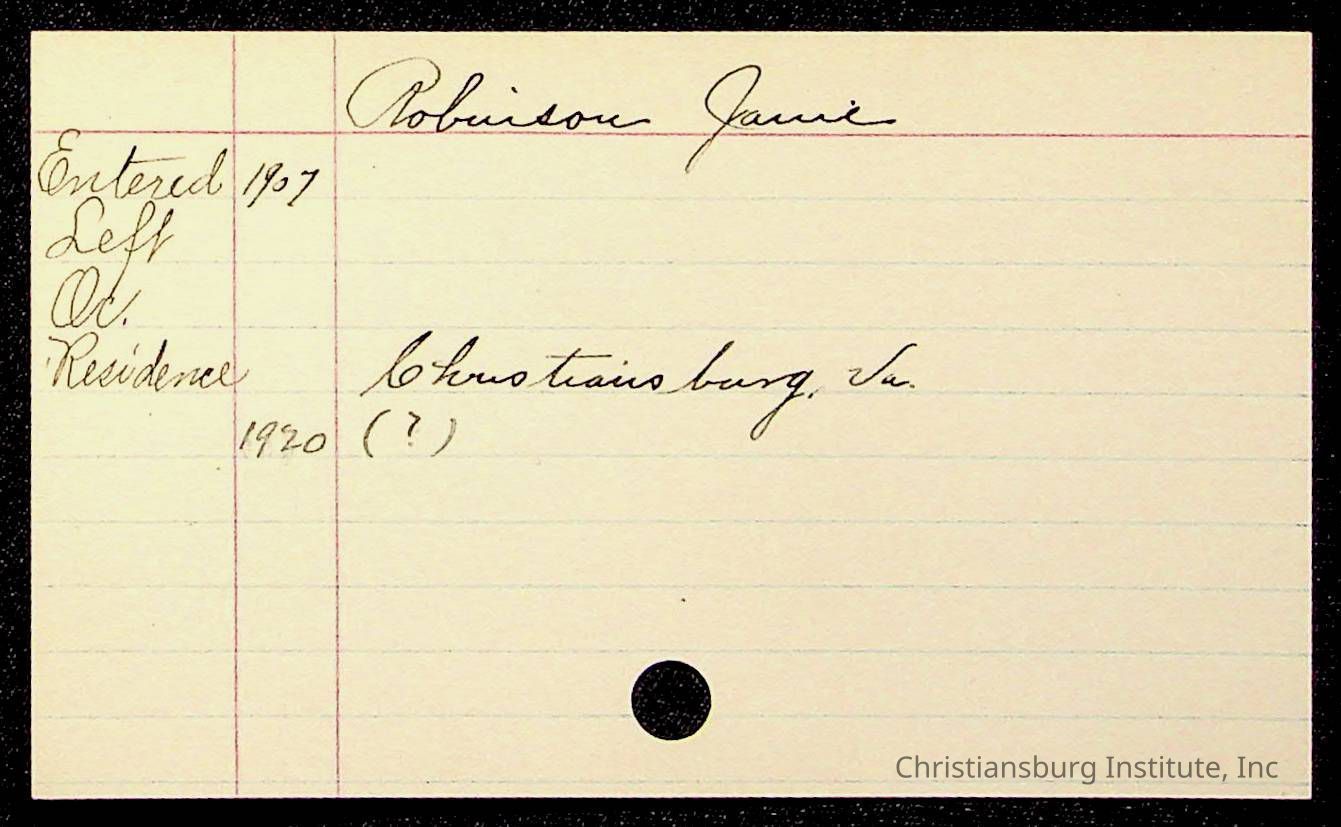 Robinson Jamie
Entered 1907
Left
Oc.
Residence Christiansburg, Va.
1920 (?)
Christiansburg Institute, Inc